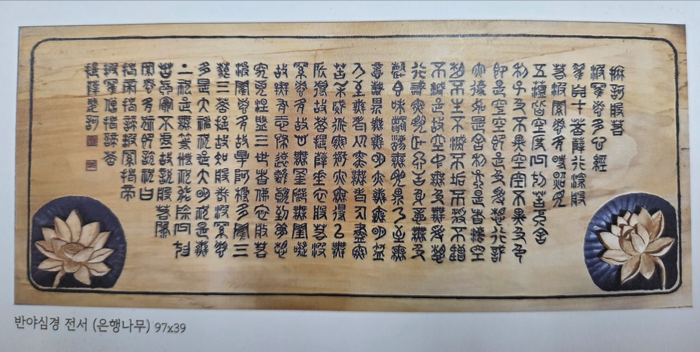 摩訶般若
波羅蜜多心經
觀自在菩薩行深般
若波羅蜜多時照見
五蘊皆空度一切苦厄舍
利子色不異空空不異色色
卽是空空卽是色受想行識
亦復如是舍利子是諸法空
相不生不滅不垢不淨不增
不減是故空中無色無受想
行識無眼耳鼻舌身意無色
聲香味觸法無眼界乃至無
意識界無無明亦無無明盡
乃至無老死亦無老死盡無
苦集滅道無智亦無得以無
所得故菩提薩埵依般若波
羅蜜多故心無罣礙無罣礙
故無有恐怖遠離顚倒夢想
究竟涅槃三世諸佛依般若
波羅蜜多故得阿耨多羅三
藐三菩提故知般若波羅蜜
多是大神呪是大明呪是無
上呪是無等等呪能除一切
苦眞實不虛故說般若波羅
蜜多呪卽說呪曰
揭諦揭諦波羅揭諦
波羅僧揭諦菩
提薩婆訶
반야심경 전서 (은행나무) 97x39